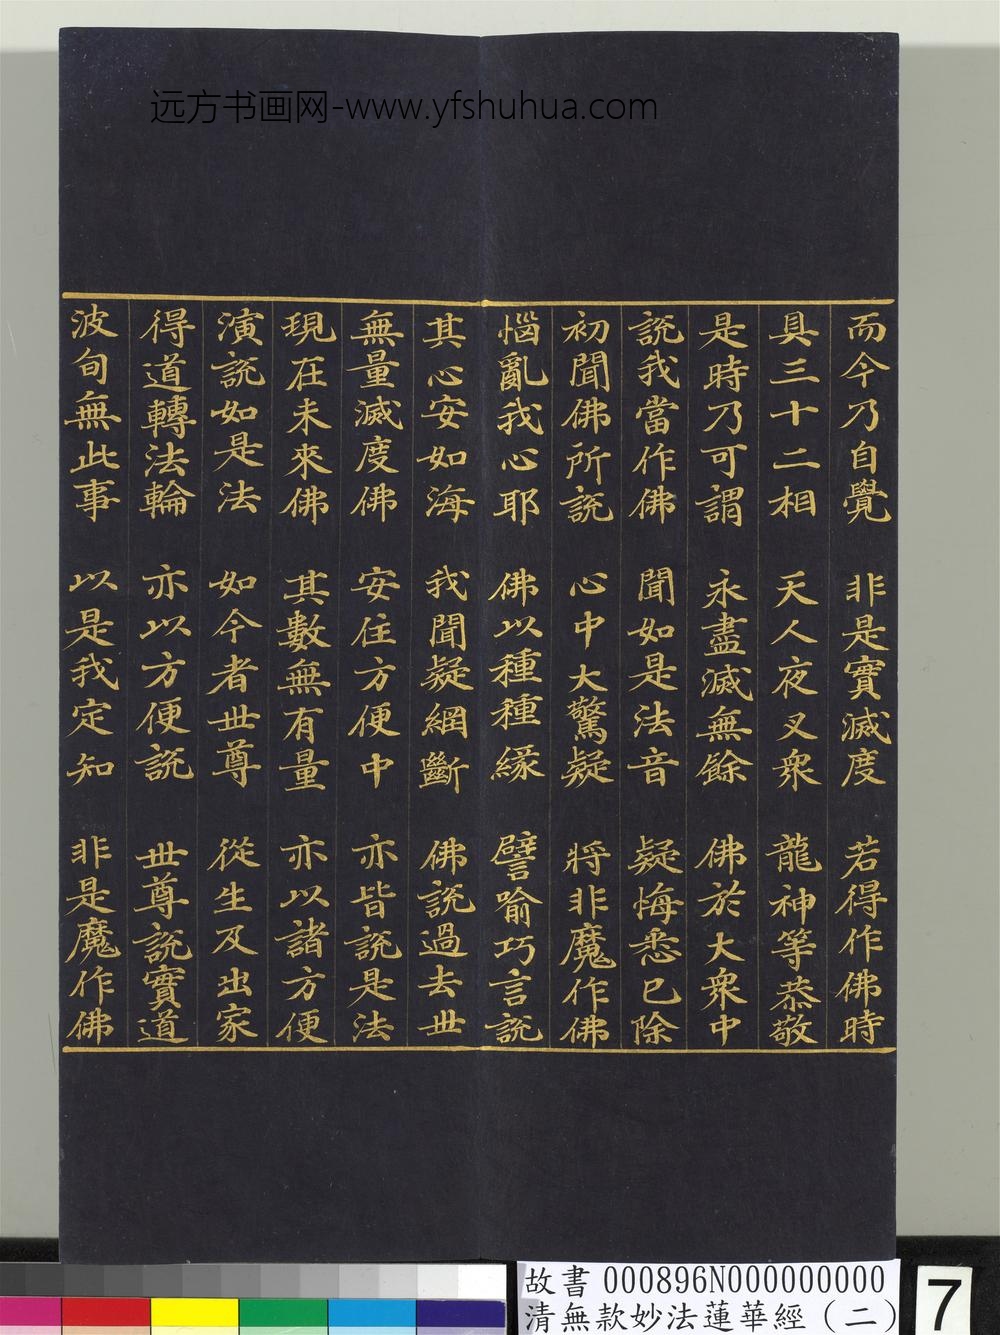 远方书画网-www.yfshuhua.com
而今乃自覺 非是實滅度 若得作佛時
具三十二相 天人夜叉衆 龍神等恭敬
是時乃可謂 永盡滅無餘 佛於大衆中
說我當作佛 聞如是法音 疑悔悉已除
初聞佛所說 心中大驚疑 將非魔作佛
惱亂我心耶 佛以種種緣 譬喻巧言說
其心安如海 我聞疑網斷 佛說過去世
無量滅度佛 安住方便中 亦皆說是法
現在未來佛 其數無有量 亦以諸方便
演說如是法 如今者世尊 從生及出家
得道轉法輪 亦以方便說 世尊說實道
波旬無此事 以是我定知 非是魔作佛
故書 000896N000000000
清無款妙法蓮華經(二)
7